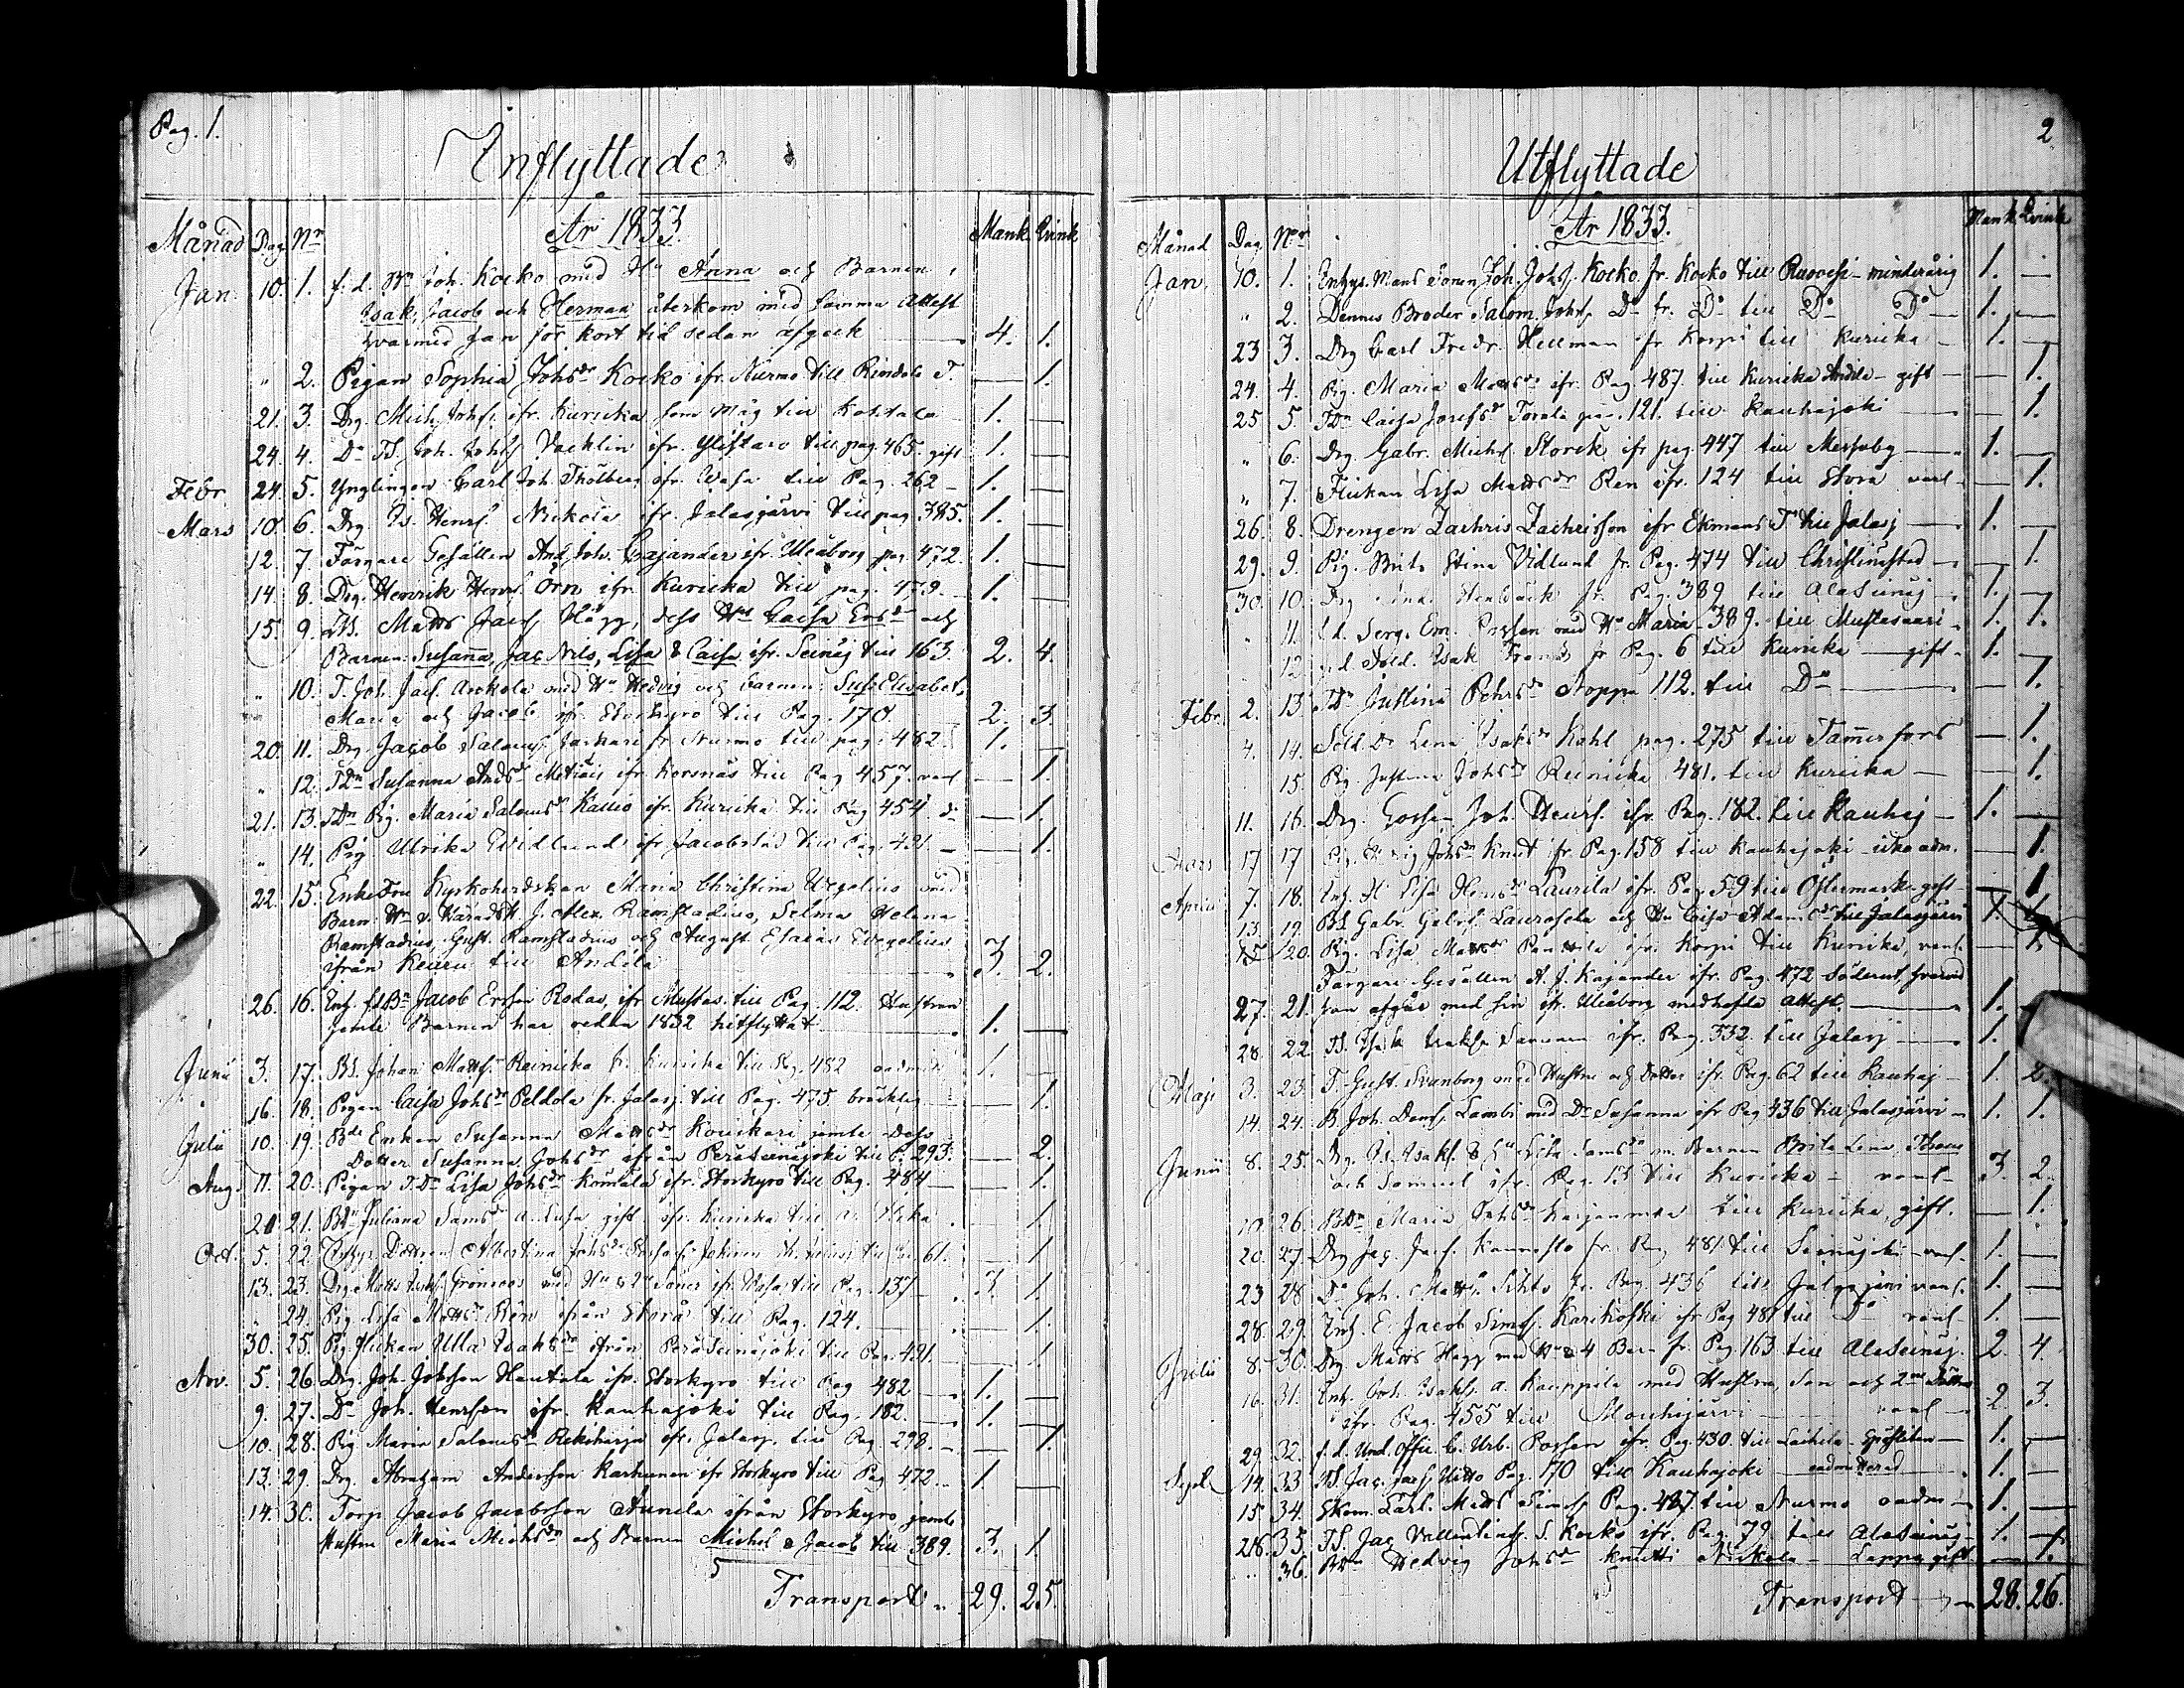 Pag. 1.
Inflyttade
År 1833.
Månad Dag Nr Mank. Qvink
Jan. 10. 1. f. d. Bn Joh. Kocko med Hu Anna och Barnen,
Isak, Jacob och Herman återkom med samma Attest
hvarmed han för kort tid sedan afgick 4. 1.
" 2. Pigan Sophia Johsdr Kocko ifr. Nurmo till Rindala T. — 1.
21. 3. Drg. Mich. Johss. ifr. Kuricka som måg till Kohtala 1. —
24. 4. Do TS. Joh. Johss. Vacklin ifr. Ylistaro till pag. 465. gift 1. —
Febr. 24. 5. Ynglingen Carl Joh. Thölberg ifr. Wasa till Pag. 262 — 1. —
Mars 10. 6. Drg. Is. Henrs. Nickola ifr. Jalasjärvi till pag. 385. 1. —
12. 7. Färgare Gesällen And. Joh. Cajander ifr. Uleåborg pag. 472. 1. —
14. 8. Drg. Henrik Henrs. Örn ifr. Kuricka till pag. 479. — 1. —
15. 9. Matts Jacs. Hägg, dess Hu Caisa Ersdr och
Barnen: Susanna, Jac. Nils, Lisa & Caisa ifr. Seinäj. till 163. 2. 4.
" 10. T. Joh. Jacs. Ankola med Hu Hedvig och barnen: Sus: Elisabet,
Maria och Jacob ifr. Storkyro till Pag. 170. 2. 3.
20. 11. Drg. Jacob Saloms. fr. Nurmo till pag. 482. 1. —
" 12. TDr Susanna Andsdr Metiäis ifr. Korsnäs till Pag. 457. — 1.
21. 13. TDr Pig. Maria Salomsdr Kallio ifr. Kuricka till Pag. 454. do — 1.
" 14. Pig. Ulrika Widlund ifr. Jacobstad till Pag. 491. — — 1.
22. 15. Enkefru Kyrkoherdskan Maria Christina Wegelius med
Barn: Hn v. Häradsh. J. Alex. Ramstadius, Selma Helena
Ramstadius, Gust. Ramstadius och August Esaias Wegelius
ifrån Keuru till Andila 3. 2.
26. 16. Enh. f.d. Bn Jacob Ersson Rodas, ifr. Mustas. till Pag. 112. Hustrun
jemte Barnen har redan 1832 hitflyttat 1. —
Junii 3. 17. BS. Johan Matts. Reinicka fr. Kuricka till Pag. 482 oadmitt. 1. —
16. 18. Pigan Caisa Johsdr Peldola fr. Jalasj. till Pag. 475. bräcklig — 1.
Julii 10. 19. Bde Enkan Susanna Mattsdr Kouckari jemte dess
Dotter Susanna Johsdr ifrån Peräseinäjoki till P. 293. — 2.
Aug. 11. 20. Pigan T.Dr Lisa Johsdr Komula ifr. Storkyro till Pag. 484 — — 1.
20 21. BDr Juliana Samsdr a. Luja gift ifr. Kuricka till — 1.
Oct. 5. 22. Dottren Albertina Johsdr till 61. — 1.
13. 23. Drg. Matts Grönroos med Hu & 2ne Söner ifr. Wasa till Pag. 137 3. 1.
" 24. Pig. Lisa Mattsdr Ren ifrån Storå till Pag. 124. — 1.
30. 25. Pig. flickan Ulla Isaksdr ifrån Peräseinäjoki till Pag. 491. — — 1.
Nov. 5. 26. Drg. Joh. Johsson Hautala ifr. Storkyro till Pag. 482 1. —
9. 27. Do Joh. Henrsson ifr. Kauhajoki till Pag. 182. — 1. —
10. 28. Pig. Maria Salomsdr Rekiharju ifr. Jalasj. till Pag. 298. — — 1.
13. 29. Drg. Abraham Andersson Karhunen ifr. Storkyro till Pag. 472. 1. —
14. 30. Torp. Jacob Jacobsson Aunela ifrån Storkyro jemte
Hustru Maria Michsdr och Barnen Michel & Jacob till 389. 3. 1.
Transport " 29. 25.
2
Utflyttade
År 1833.
Månad Dag Nr Mank Qvink
Jan. 10. 1. Enhys. Mans Sonen Joh. Johss. Kocko fr. Kocko till Ruovesi – minderårig 1. —
" 2. Dennes Broder Salom. Johss. Do fr. Do till Do Do — 1. —
23 3. Drg. Carl Fredr. Hellman fr. Korpi till Kuricka — 1. —
24. 4. Pig. Maria Mattsdr ifr. Pag. 487. till Kuricka Andila – gift — — 1.
25 5. TDr Caisa Josefsdr Torala pag. 121. till Kauhajoki — 1.
" 6. Drg. Gabr. Michs. Storck ifr. pag. 447 till Messuby — 1. —
" 7. Flickan Lisa Mattsdr Ren ifr. 124 till Storå vanl. — — 1.
26 8. Drengen Zachris Zachrisson ifr. Ekmans T. till Jalasj — 1. —
29. 9. Pig. Brita Stina Vidlund fr. Pag. 474 till Christinestad — — 1.
30. 10. Drg. Stenbäck fr. Pag. 389 till Alaseinäj — 1. —
" 11. f.d. Serg. Em. Possen med Hu Maria – 389. till Mustasaari 1. 1.
12 f.d. Sold. Isak fr. Pag. 6 till Kuricka — gift — 1. —
Febr. 2. 13 TDr Justina Pehrsdr Noppa 112. till Do — — 1.
4. 14. Sold. Dr Lena Isaksdr Kahl pag. 275 till Tammerfors — 1.
15. Pig. Justina Johsdr Reinicka 481. till Kuricka — — 1.
11. 16. Drg. Gosse Joh. Henrs. ifr. Pag. 182. till Kauhaj — 1. —
Mars 17 17 Pig. Hedvig Johsdr Knut ifr. Pag. 158 till Kauhajoki – icke adm. — 1.
Aprill 7. 18. Enk. H. Lisa Hinsdr Laurila ifr. Pag. 59 till Östermark – gift — 1.
13. 19. BS. Gabr. Gabrs. Laurosela och Hu Caisa Adamsdr till Jalasjärvi 1. 1.
15 20. Pig. Lisa Mattsdr Panttila ifr. Korpi till Kuricka, vanl. — 1.
Färgare Gesällen A. J. Kajander ifr. Pag. 472 Söderut, hvarvid
27. 21. han afgår med sin ifr. Uleåborg medhafda attest. — 1. —
28. 22 TS. Isak Isakss. ifr. Pag. 332. till Jalasj — 1.
Maji 3. 23. T. Gust. Svanborg med Hustru och Dotter ifr. Pag. 62 till Kauhaj — 1. 2.
14. 24. B. Joh. Lambi med Dr Susanna ifr. Pag. 436 till Jalasjärvi — 1. 1.
Junii 8. 25. Drg. Is. Isaks. & Hu Lisa Samsdr m. Barnen Brita Lena, Thom.
och Samuel ifr. Pag. 13 till Kuricka — vanl. 3. 2.
10 26. BDr Maria Johsdr till Kuricka, gift. — 1.
20. 27. Drg. Jac. Jacs. fr. Pag. 481. till Seinäjoki – vanl. 1. —
23 28 Do Joh. Matts. Sihto fr. Pag. 436 till Jalasjärvi vanl. 1. —
28. 29. Enh. E. Jacob Sims. Karikoski ifr. Pag. 481 till Do vanl. 1. —
Julii 8. 30. Drg. Matts Hägg med Hu & 4 Barn fr. Pag. 163 till Alaseinäj. 2. 4.
16. 31. Enh. Joh. Isaks. a. Kauppila med Hustru, Son och 2ne Döttrar
ifr. Pag. 455 till Mouhijärvi — vanl. — 2. 3.
29. 32. f.d. Und. Offic. C. Urb. Possen ifr. Pag. 430. till Laihela — 1. —
Sept. 14. 33 TS. Jac. Jacs. Uitto Pag. 170 till Kauhajoki oadmitterad 1. —
15. 34. Skom. Lärl. Matts Sims. Pag. 487. till Nurmo oadm — 1. —
28 35. TS. Jac. Vallentins. S. Kocko ifr. Pag. 79 till Alaseinäj — 1. —
" 36. BDr Hedvig Johsdr Knutti Nickola — Lappo gift — 1.
Transport 28. 26.